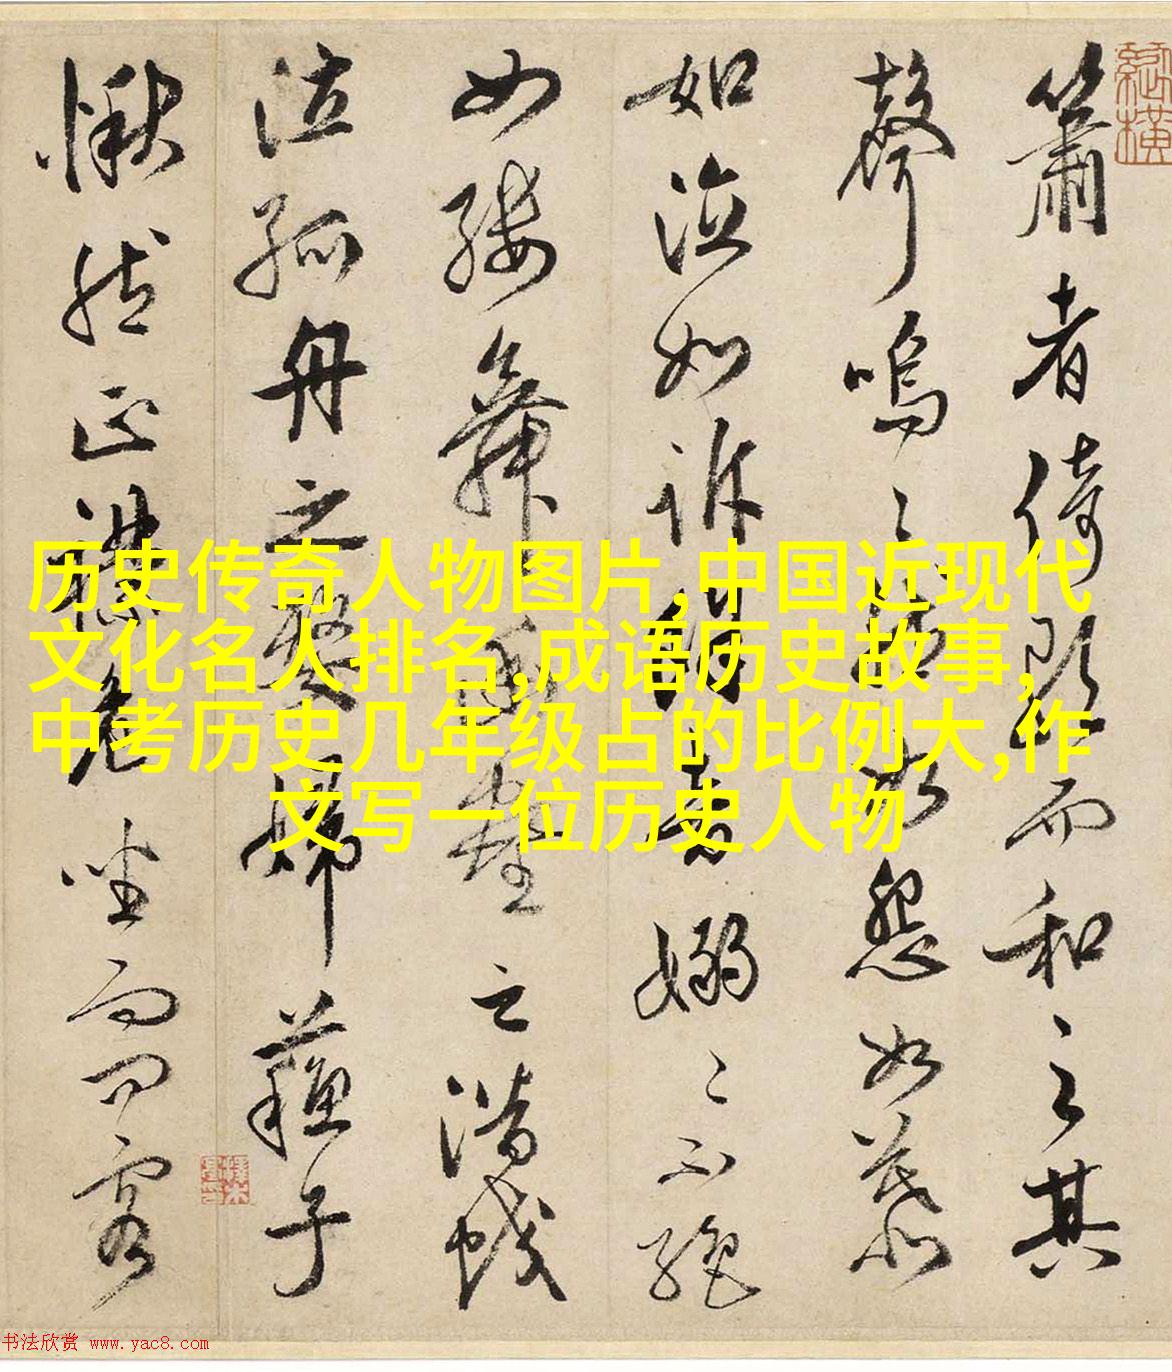 簫者倚歌而和之其
聲嗚〻然如怨如慕
如泣如訴餘音嫋〻不絕
如縷舞幽壑之潛蛟
泣孤舟之嫠婦蘓子
愀然正襟危坐而問客
历史传奇人物图片,中国近现代
文化名人排名,成语历史故事,
中考历史几年级占的比例大,作
文写一位历史人物
书法欣赏 www.yac8.com